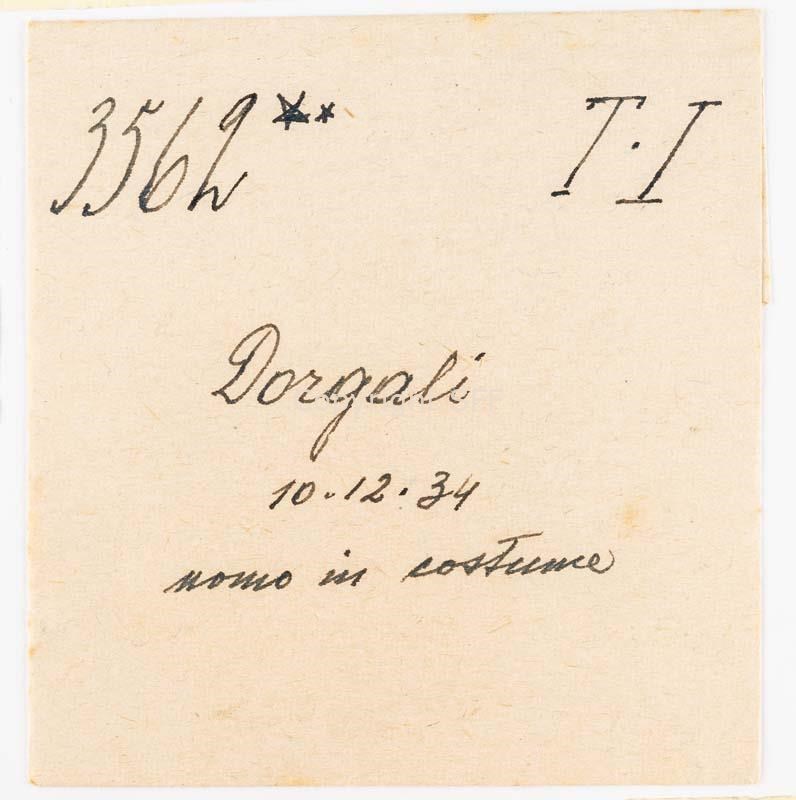 3562** T.I
Dorgali
10.12.34
uomo in costume